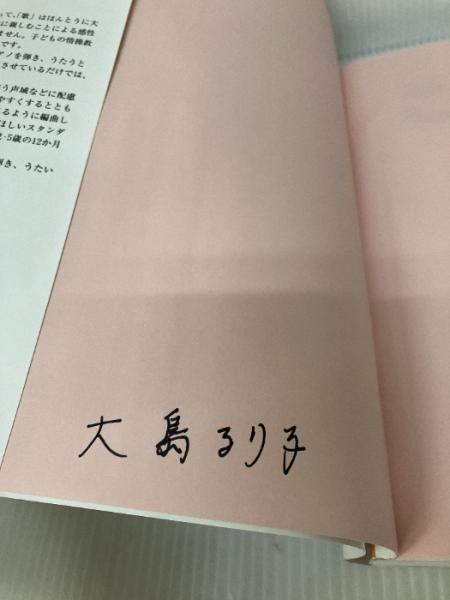 って、「歌」はほんとうに大
に親しむことによる感性
ません。子どもの情操教
です。
アノを弾き、うたうと
させているだけでは、
う声域などに配慮
やすくするととも
るように編曲し
ほしいスタンダ
2・5歳の12か月
弾き、うたい
大島るり子